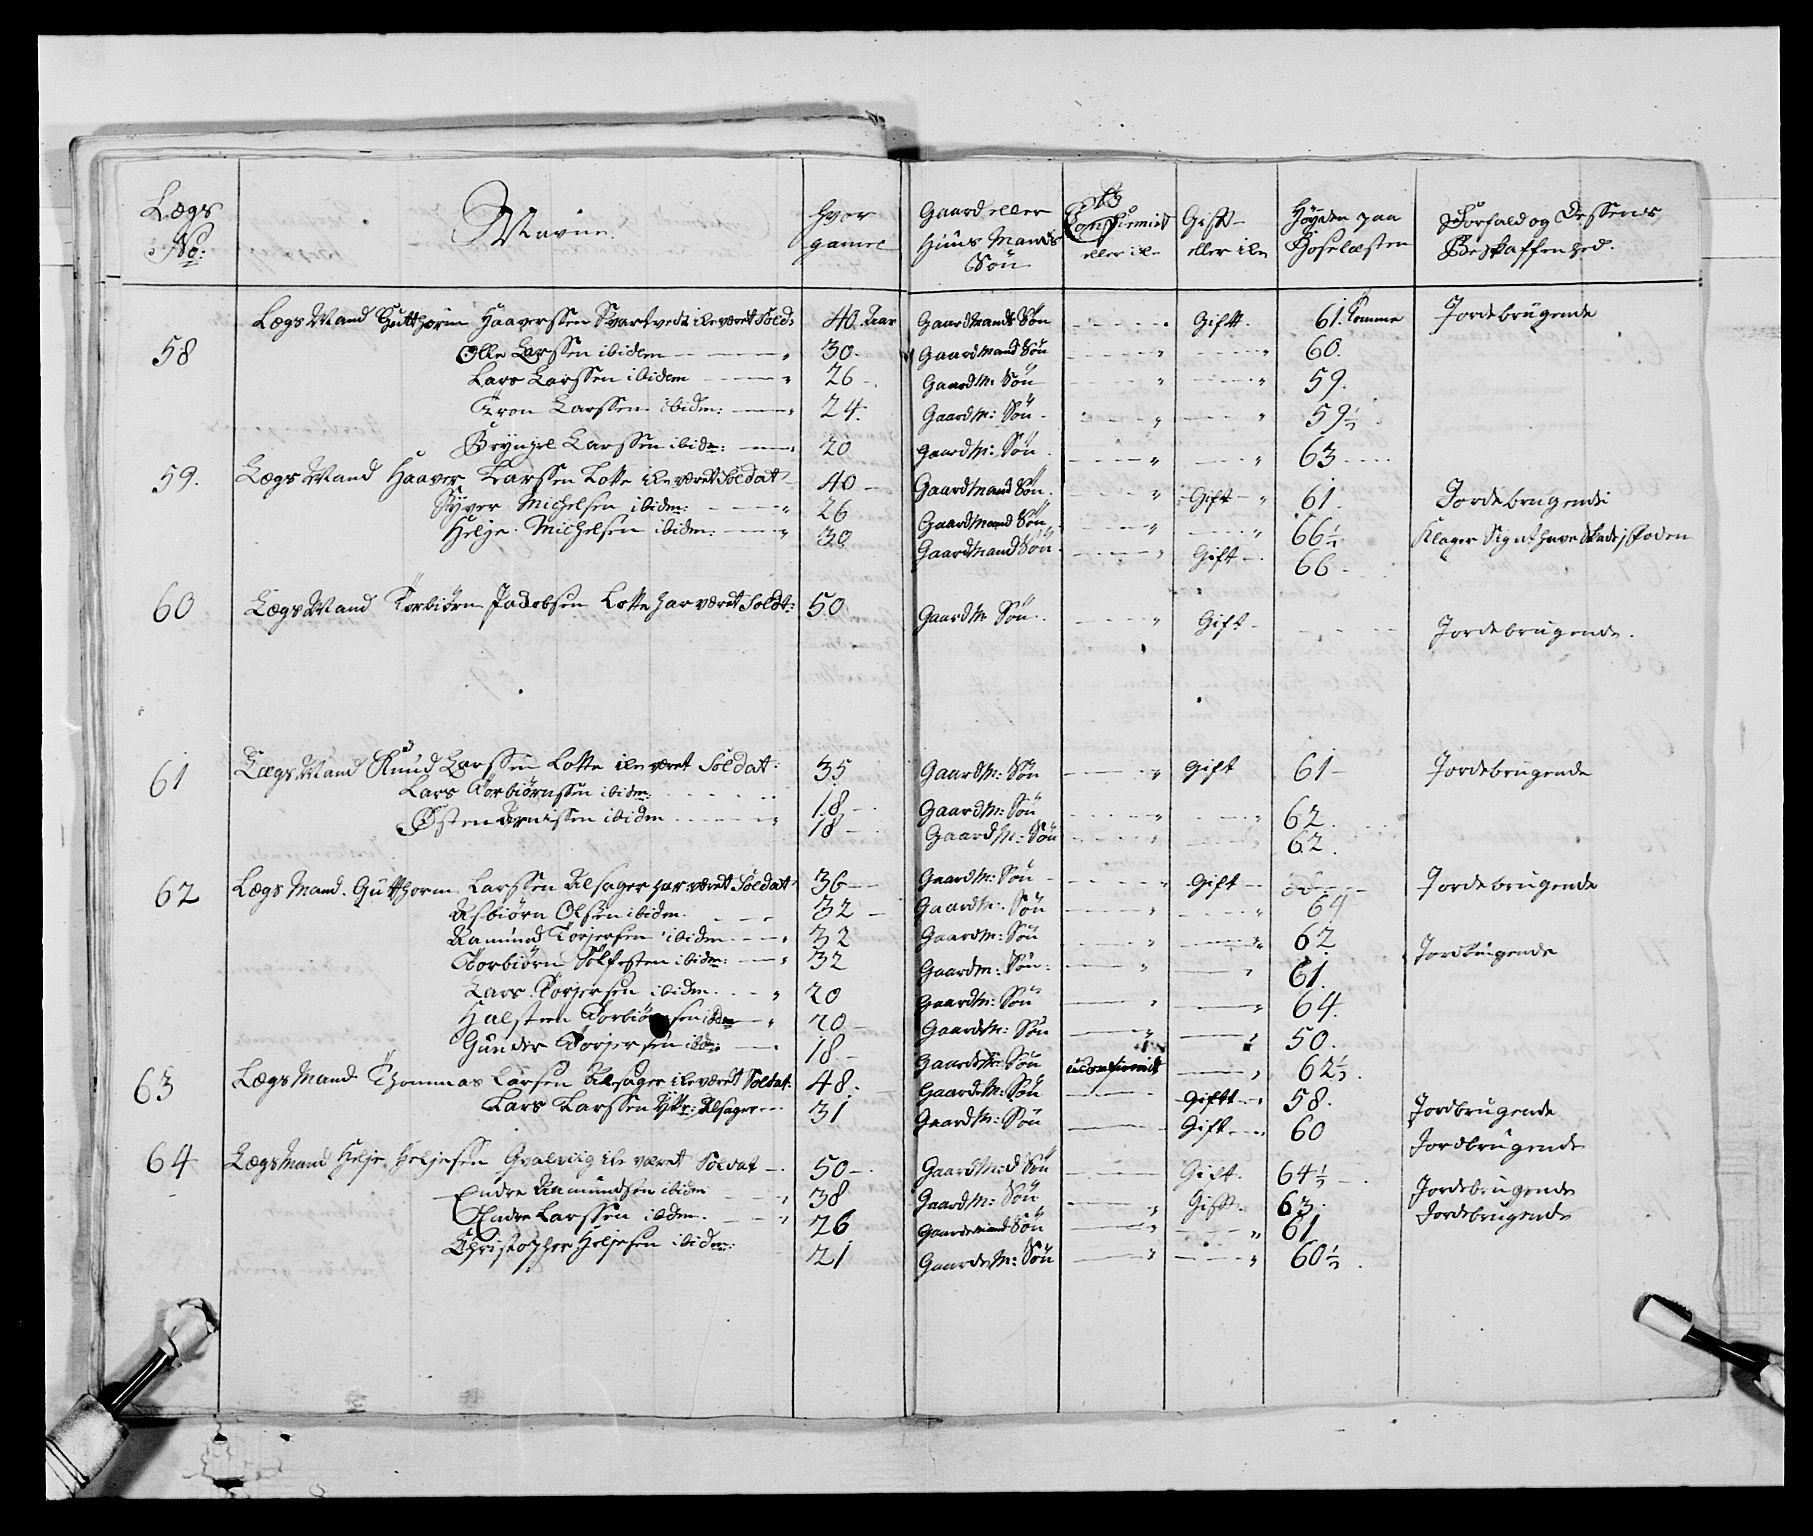 Lægs No: | Navne | hvor gamel | Gaard eller Huus Mands Søn | Er Confirmit eller ik | Gift eller ik | Høyden paa Hoselæsten | Forfald og dessens Beskaffenhed.
58 | Lægs Mand Gutthorm Haaverssen Svartvedt ike været Sold: | 40. Aar | Gaardmands Søn | Gift. | 61. Tomme | Jordebrugende
Olle Larssen ibidem | 30. | Gaardmand Søn | 60.
Lars Larssen ibidem | 26 | Gaard M: Søn | 59.
Tron Larssen ibidem: | 24. | Gaard M: Søn | 59½
Bryngel Larssen ibidem: | 20 | Gaard M: Søn | 63
59. | Lægs Mand Haaver Larssen Lotte ike været Soldat | 40 | Gaardmand Søn. | Gift | 61. | Jordebrugende
Syver Michelsen ibidem: | 26 | Gaardmand Søn | 66½ | Klager Sig at have Skade i Foden
Helje Michelsen ibidem: | 30 | Gaardmand Søn | Gift | 66
60 | Lægs Mand Torbiørn Jacobsen Lotte har været Soldt: | 50 | Gaard M Søn. | Gift | Jordebrugende.
61 | Lægs Mand Knud Larssen Lotte ike været Soldat: | 35 | Gaard M: Søn | Gift | 61 | Jordebrugende
Lars Torbiørnssen ibidem: | 18 | Gaard M: Søn | 62.
Østen Arnissen ibidem | 18 | Gaard M: Søn | 62.
62 | Lægs Mand. Gutthorm Larssen Alsager har været Soldat | 36 | Gaard M: Søn | Gift | Jordebrugende
Asbiørn Olsen ibidem. | 32 | Gaard M: Søn | 64
Aamund Torjersen ibidem | 32 | Gaard M: Søn | 62 | Jordbrugende
Torbiørn Solfesten ibidem: | 32 | Gaard M: Søn: | 61.
Lars Torjersen ibidem. | 20 | Gaard M: Søn | 64.
Halsten Torbiørnsen ibidem | 20 | Gaard M: Søn | 50.
Gunder Torjersen ibidem: | 18 | Gaard M: Søn | uconfirmit | 62½.
63 | Lægs Mand Thommas Larsen Alsager ike været Soldat. | 48. | Gaard M: Søn | Gift | 58. | Jordbrugende
Lars Larssen Alsager | 31 | Gaard M: Søn | Gift | 60 | Jordbrugende
64 | Lægs Mand Helje Heljesen ike været Soldat | 50 | Gaard M:d Søn | Gift. | 64½ | Jordebrugende
Endre Aamundsen ibidem | 38 | Gaard M: Søn | Gift | 63. | Jordebrugende
Endre Larssen ibidem. | 26 | Gaardemand Søn | 61
Christopher Heljesen ibidem: | 21 | Gaarde M: Søn | 60½.